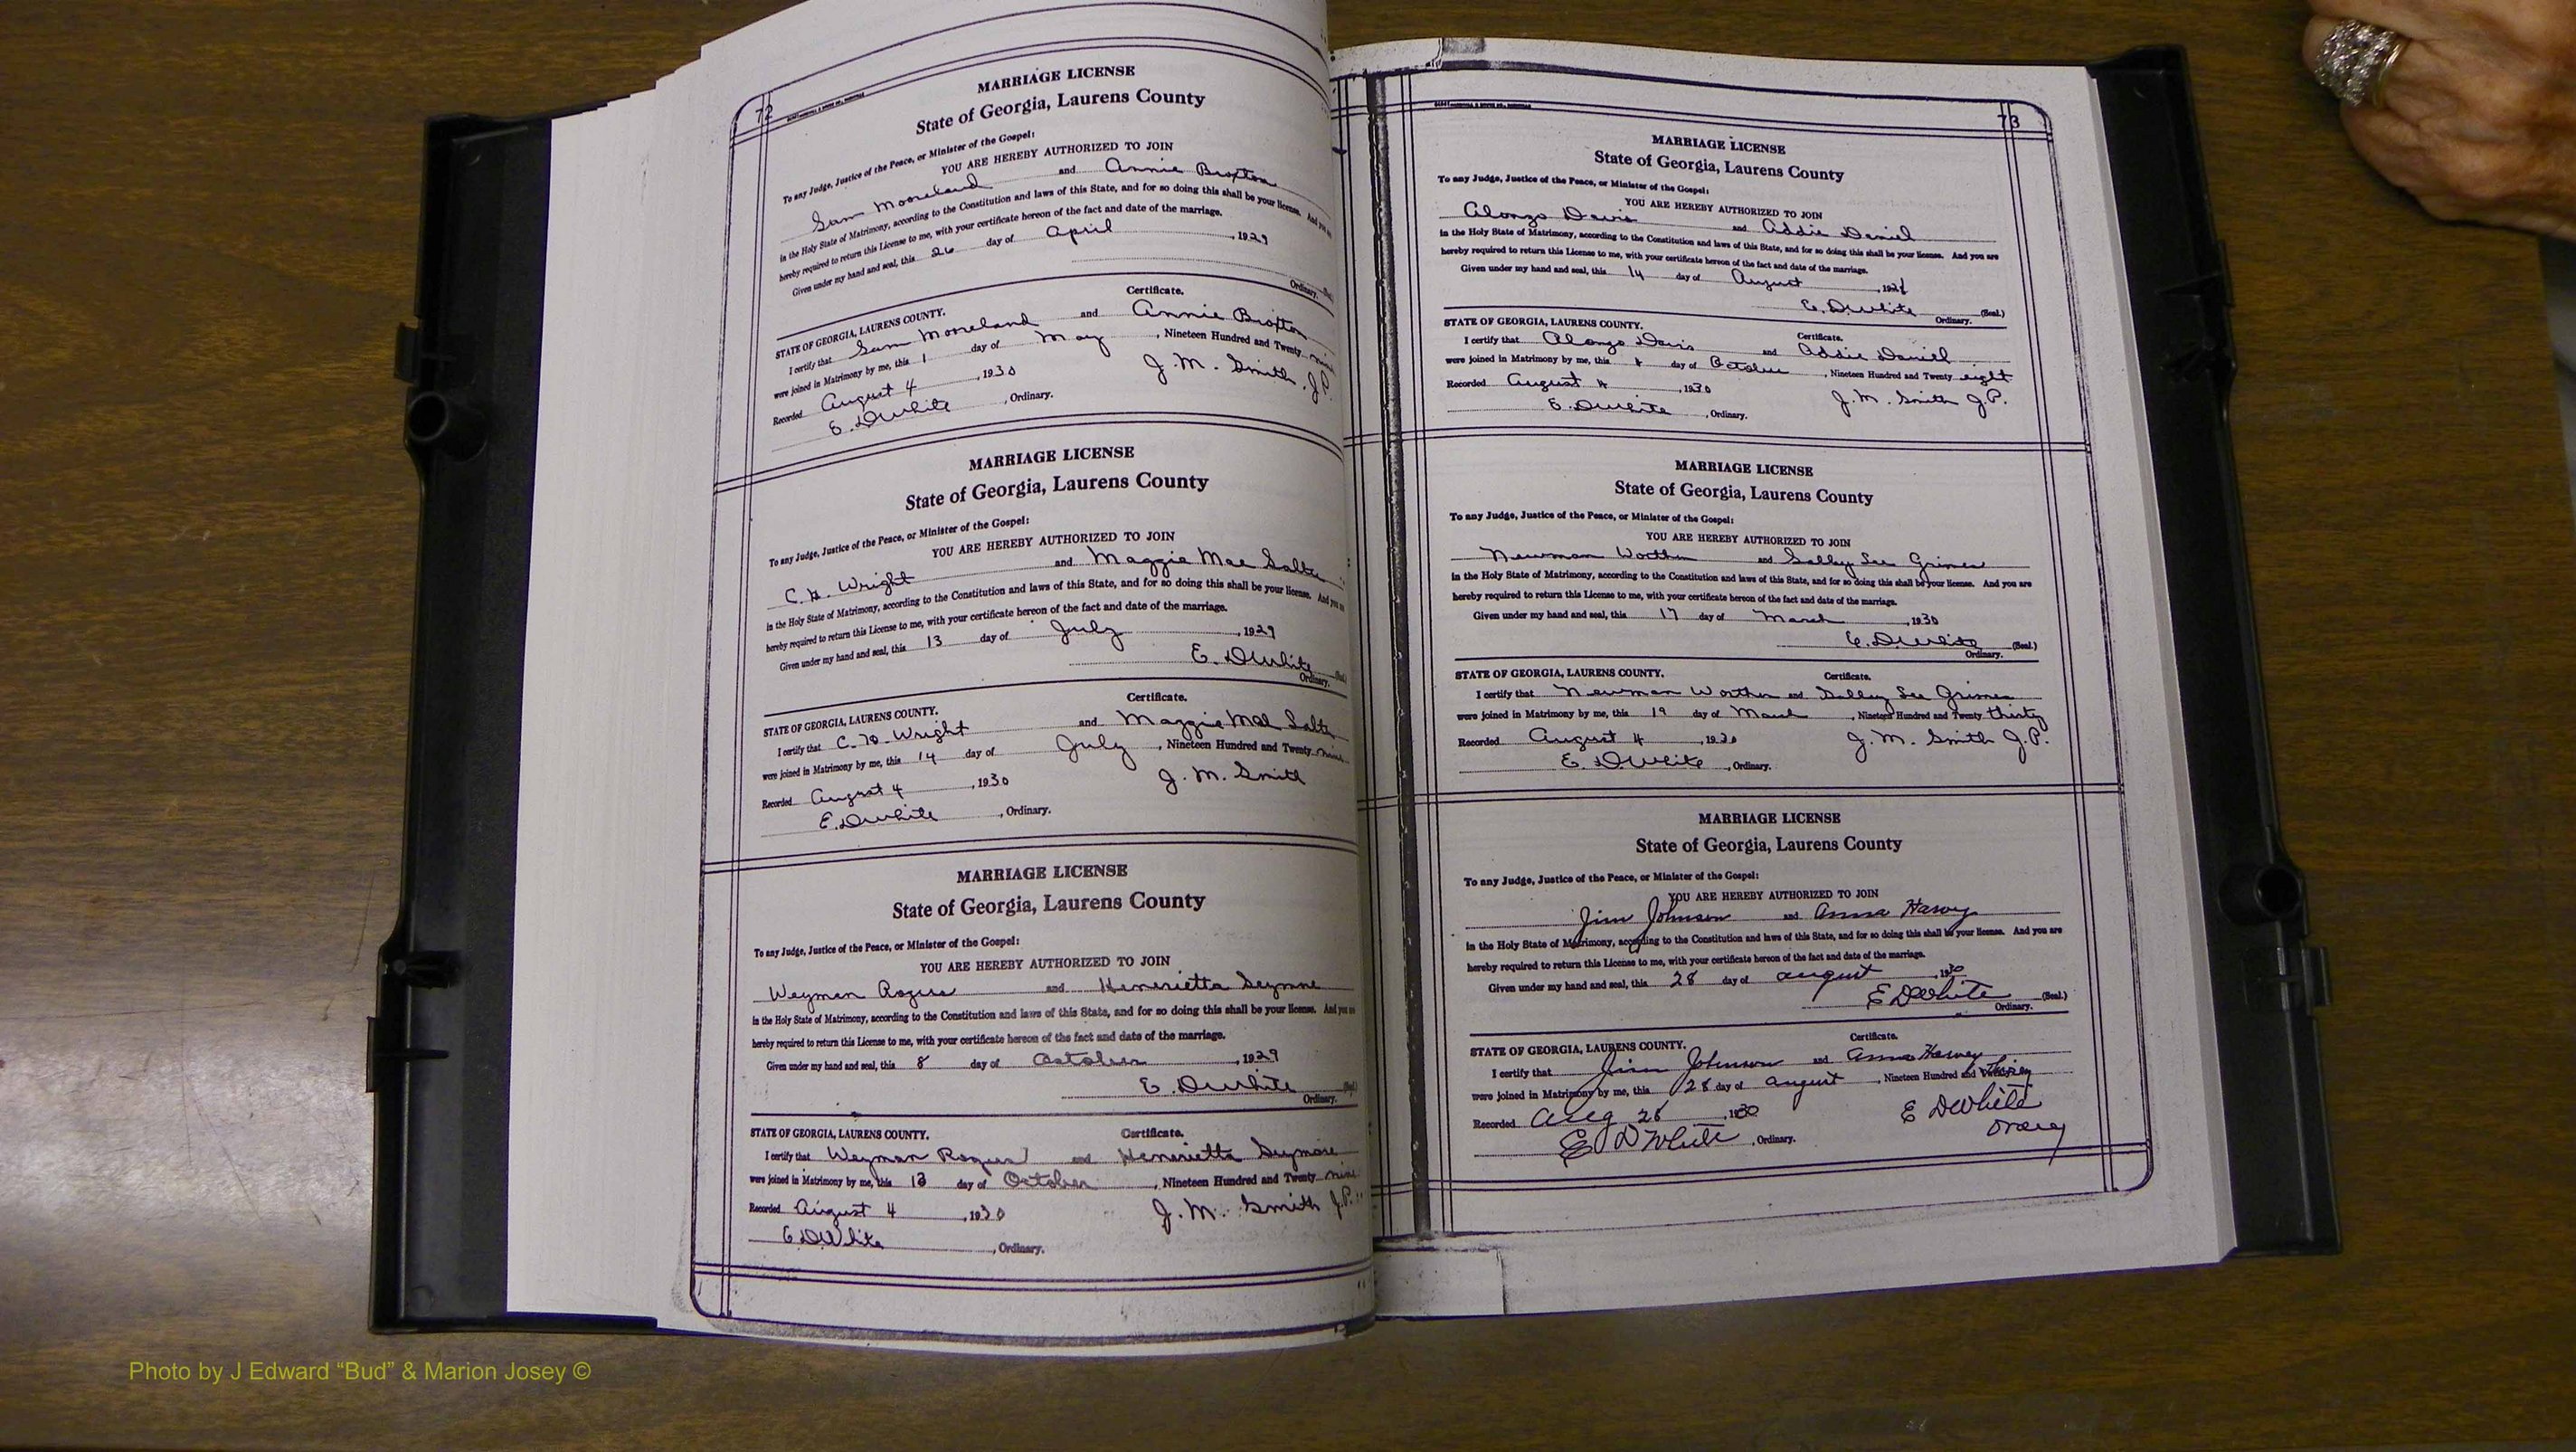 72
MARRIAGE LICENSE
State of Georgia, Laurens County
To any Judge, Justice of the Peace, or Minister of the Gospel:
YOU ARE HEREBY AUTHORIZED TO JOIN
Sam Mooreland and Annie Broxton
in the Holy State of Matrimony, according to the Constitution and laws of this State, and for so doing this shall be your license. And you
hereby required to return this License to me, with your certificate hereon of the fact and date of the marriage.
Given under my hand and seal, this 26 day of April, 1929
Ordinary.
STATE OF GEORGIA, LAURENS COUNTY. Certificate.
I certify that Sam Mooreland and Annie Broxton
were joined in Matrimony by me, this 1 day of May, Nineteen Hundred and Twenty nine
Recorded August 4, 1930 J. M. Smith J.P.
E. D White, Ordinary.
MARRIAGE LICENSE
State of Georgia, Laurens County
To any Judge, Justice of the Peace, or Minister of the Gospel:
YOU ARE HEREBY AUTHORIZED TO JOIN
C. H. Wright and Maggie Mae Salter
in the Holy State of Matrimony, according to the Constitution and laws of this State, and for so doing this shall be your license. And you
hereby required to return this License to me, with your certificate hereon of the fact and date of the marriage.
Given under my hand and seal, this 13 day of July, 1929
E. D White (Seal.)
Ordinary.
STATE OF GEORGIA, LAURENS COUNTY. Certificate.
I certify that C. H. Wright and Maggie Mae Salte
were joined in Matrimony by me, this 14 day of July, Nineteen Hundred and Twenty nine
Recorded August 4, 1930 J. M. Smith
E. D White, Ordinary.
MARRIAGE LICENSE
State of Georgia, Laurens County
To any Judge, Justice of the Peace, or Minister of the Gospel:
YOU ARE HEREBY AUTHORIZED TO JOIN
Weyman Rogers and Henerietta
in the Holy State of Matrimony, according to the Constitution and laws of this State, and for so doing this shall be your license. And you are
hereby required to return this License to me, with your certificate hereon of the fact and date of the marriage.
Given under my hand and seal, this 8 day of October, 1929
E. D White (Seal)
Ordinary.
STATE OF GEORGIA, LAURENS COUNTY. Certificate.
I certify that Weyman Rogers and Henerietta Seymore
were joined in Matrimony by me, this 13 day of October, Nineteen Hundred and Twenty nine
Recorded August 4, 1930 J. M. Smith J.P.
E D White, Ordinary.
73
MARRIAGE LICENSE
State of Georgia, Laurens County
To any Judge, Justice of the Peace, or Minister of the Gospel:
YOU ARE HEREBY AUTHORIZED TO JOIN
Alonzo Davis and Addie Daniel
in the Holy State of Matrimony, according to the Constitution and laws of this State, and for so doing this shall be your license. And you are
hereby required to return this License to me, with your certificate hereon of the fact and date of the marriage.
Given under my hand and seal, this 14 day of August
E. D White (Seal.)
Ordinary.
STATE OF GEORGIA, LAURENS COUNTY. Certificate.
I certify that Alonzo Davis and Addie Daniel
were joined in Matrimony by me, this day of October, Nineteen Hundred and Twenty eight
Recorded August 4, 1930 J. M. Smith J.P.
E. D White, Ordinary.
MARRIAGE LICENSE
State of Georgia, Laurens County
To any Judge, Justice of the Peace, or Minister of the Gospel:
YOU ARE HEREBY AUTHORIZED TO JOIN
Newman Worthen and Salley See Grimes
in the Holy State of Matrimony, according to the Constitution and laws of this State, and for so doing this shall be your license. And you are
hereby required to return this License to me, with your certificate hereon of the fact and date of the marriage.
Given under my hand and seal, this 17 day of March, 1930
E. D White (Seal.)
Ordinary.
STATE OF GEORGIA, LAURENS COUNTY. Certificate.
I certify that Newman Worthen and Salley See Grimes
were joined in Matrimony by me, this 19 day of March, Nineteen Hundred and Twenty thirty
Recorded August 4, 1930 J. M. Smith J.P.
E. D White, Ordinary.
MARRIAGE LICENSE
State of Georgia, Laurens County
To any Judge, Justice of the Peace, or Minister of the Gospel:
YOU ARE HEREBY AUTHORIZED TO JOIN
Jim Johnson and Anna Harvey
in the Holy State of Matrimony, according to the Constitution and laws of this State, and for so doing this shall be your license. And you are
hereby required to return this License to me, with your certificate hereon of the fact and date of the marriage.
Given under my hand and seal, this 28 day of August, 1930
E D White (Seal.)
Ordinary.
STATE OF GEORGIA, LAURENS COUNTY. Certificate.
I certify that Jim Johnson and Anna Harvey
were joined in Matrimony by me, this 28 day of August, Nineteen Hundred and thirty
Recorded Aug 28, 1930 E D White
E D White, Ordinary.
Photo by J Edward “Bud” & Marion Josey ©